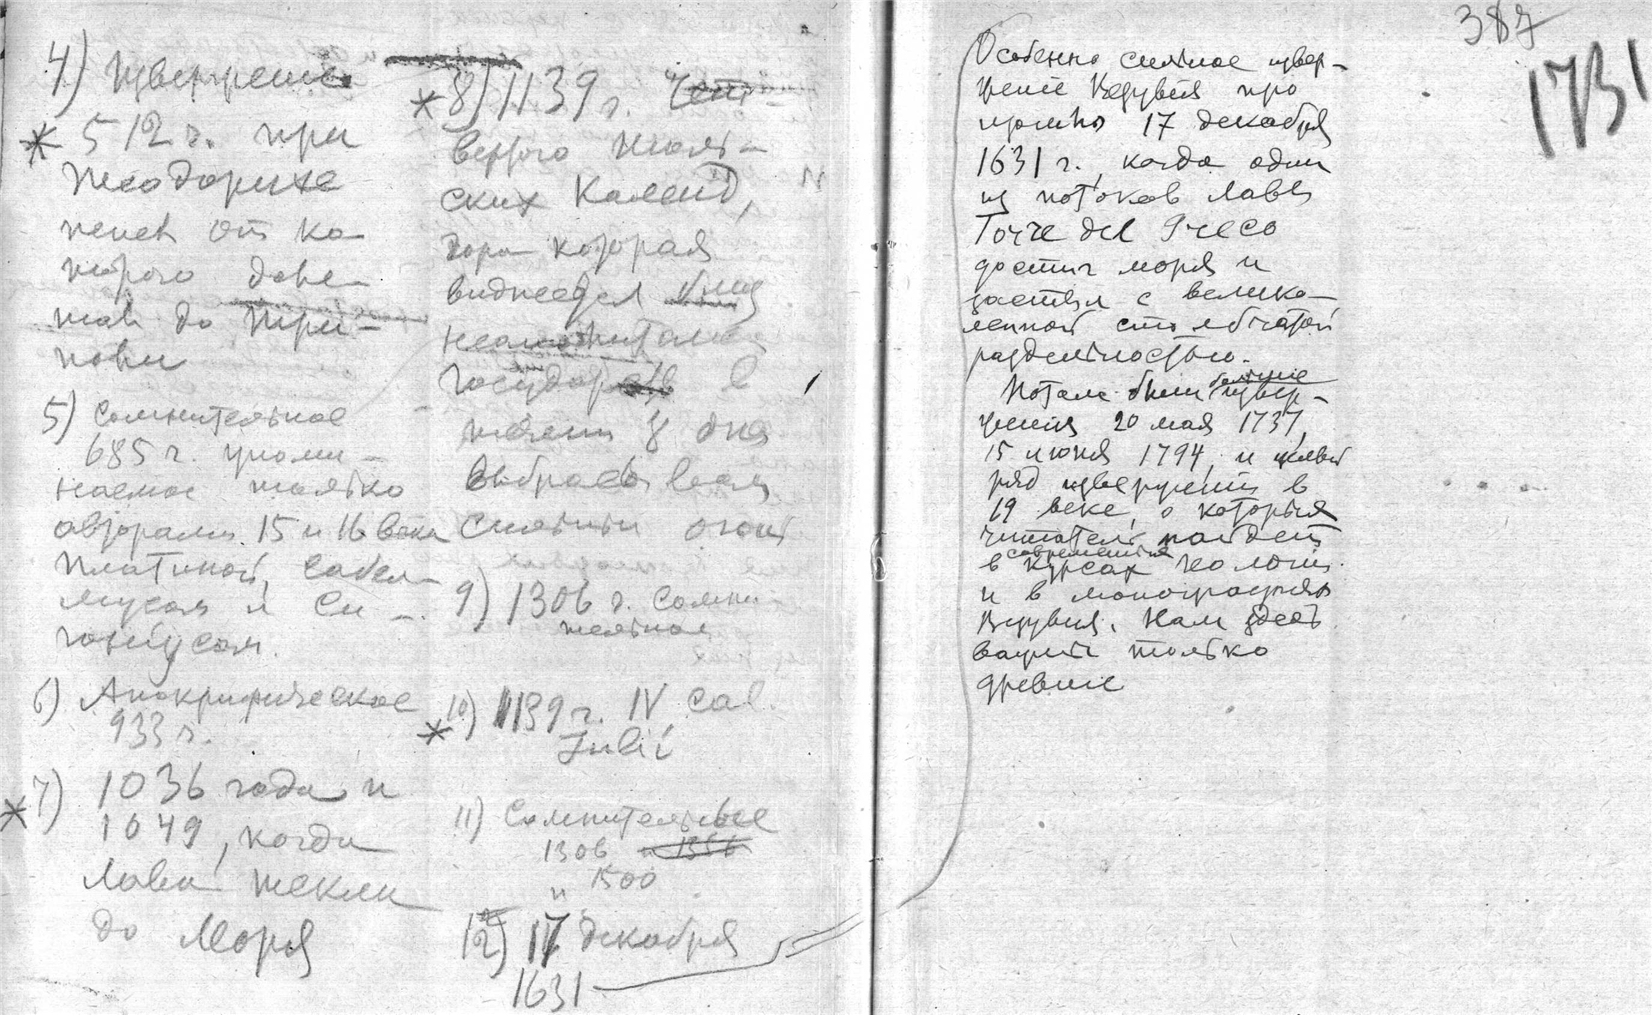 4) Извержение
* 512 г. при
Теодорихе
пепел от ко-
торого доле-
тал до Три-
поли
5) Сомнительное
685 г. упоми-
наемое только
авторами 15 и 16 века
Платиной, Сабел-
ликусом и Си-
гониусом.
6) Апокрифическое
933 г.
* 7) 1036 года и
1049, когда
лава текла
до моря
* 8) 1139 г. Чет-
вертого Июль-
ских Календ,
гора которая
виднеется близ
неаполитан
государ в
течении 8 дня
выбрасывала
сильный огонь
9) 1306 г. Сомни-
тельное
* 10) 1139 г. IV Cal.
Julii
11) Сомнительные
1306
и 1500
12) 17 декабря
1631
387
1731
Особенно сильное извер-
жение Везувия про
изошло 17 декабря
1631 г., когда один
из потоков лавы
Torre del Greco
достиг моря и
застыл с велико-
лепной столбчатой
раздельностью.
Потом были большие извер-
жения 20 мая 1737,
15 июня 1794, и целый
ряд извержений в
19 веке, о которых
читатель найдет
в современных курсах геологии
и в монографиях
Везувия. Нам здесь
важны только
древние